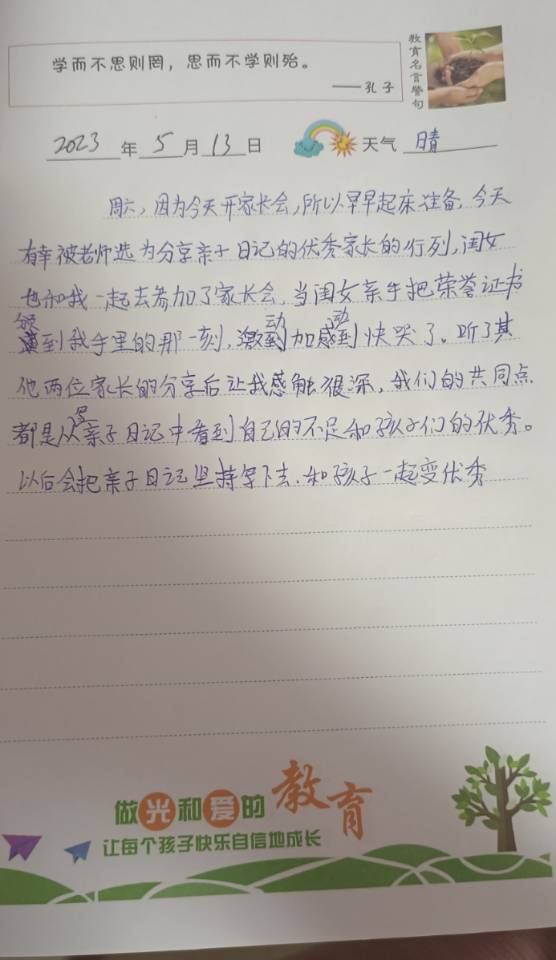 学而不思则罔，思而不学则殆。
——孔子
教育名言警句
2023年5月13日 天气 晴
周六，因为今天开家长会，所以早早起床准备，今天
有幸被老师选为分享亲子日记的优秀家长的行列，闺女
也和我一起去参加了家长会，当闺女亲手把荣誉证书
到我手里的那一刻，激动加感动到快哭了。听了其
他两位家长的分享后让我感触很深，我们的共同点
都是从写亲子日记中看到自己的不足和孩子们的优秀。
以后会把亲子日记坚持写下去，和孩子一起变优秀
做光和爱的教育
让每个孩子快乐自信地成长